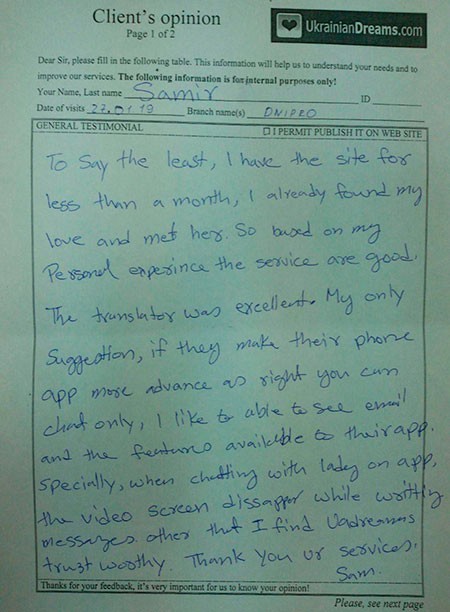 Client's opinion
Page 1 of 2
UkrainianDreams.com
Dear Sir, please fill in the following table. This information will help us to understand your needs and to
improve our services. The following information is for internal purposes only!
Your Name, Last name Samir ID
Date of visits 22.01.19 Branch name(s) DNIPRO
GENERAL TESTIMONIAL I PERMIT PUBLISH IT ON WEB SITE
To Say the least, I have the site for
less than a month, I already found my
love and met her. So based on my
Personal experince the service are good.
The translator was excellent. My only
Suggestion, if they make their phone
app more advance as right you can
chat only, I like to able to see email
and the features available to their app.
Specially, when chatting with lady on app,
the video screen dissapper while writting
messages. other that I find Uadreams
trust worthy. Thank you ur services.
Sam.
Thanks for your feedback, it's very important for us to know your opinion!
Please, see next page